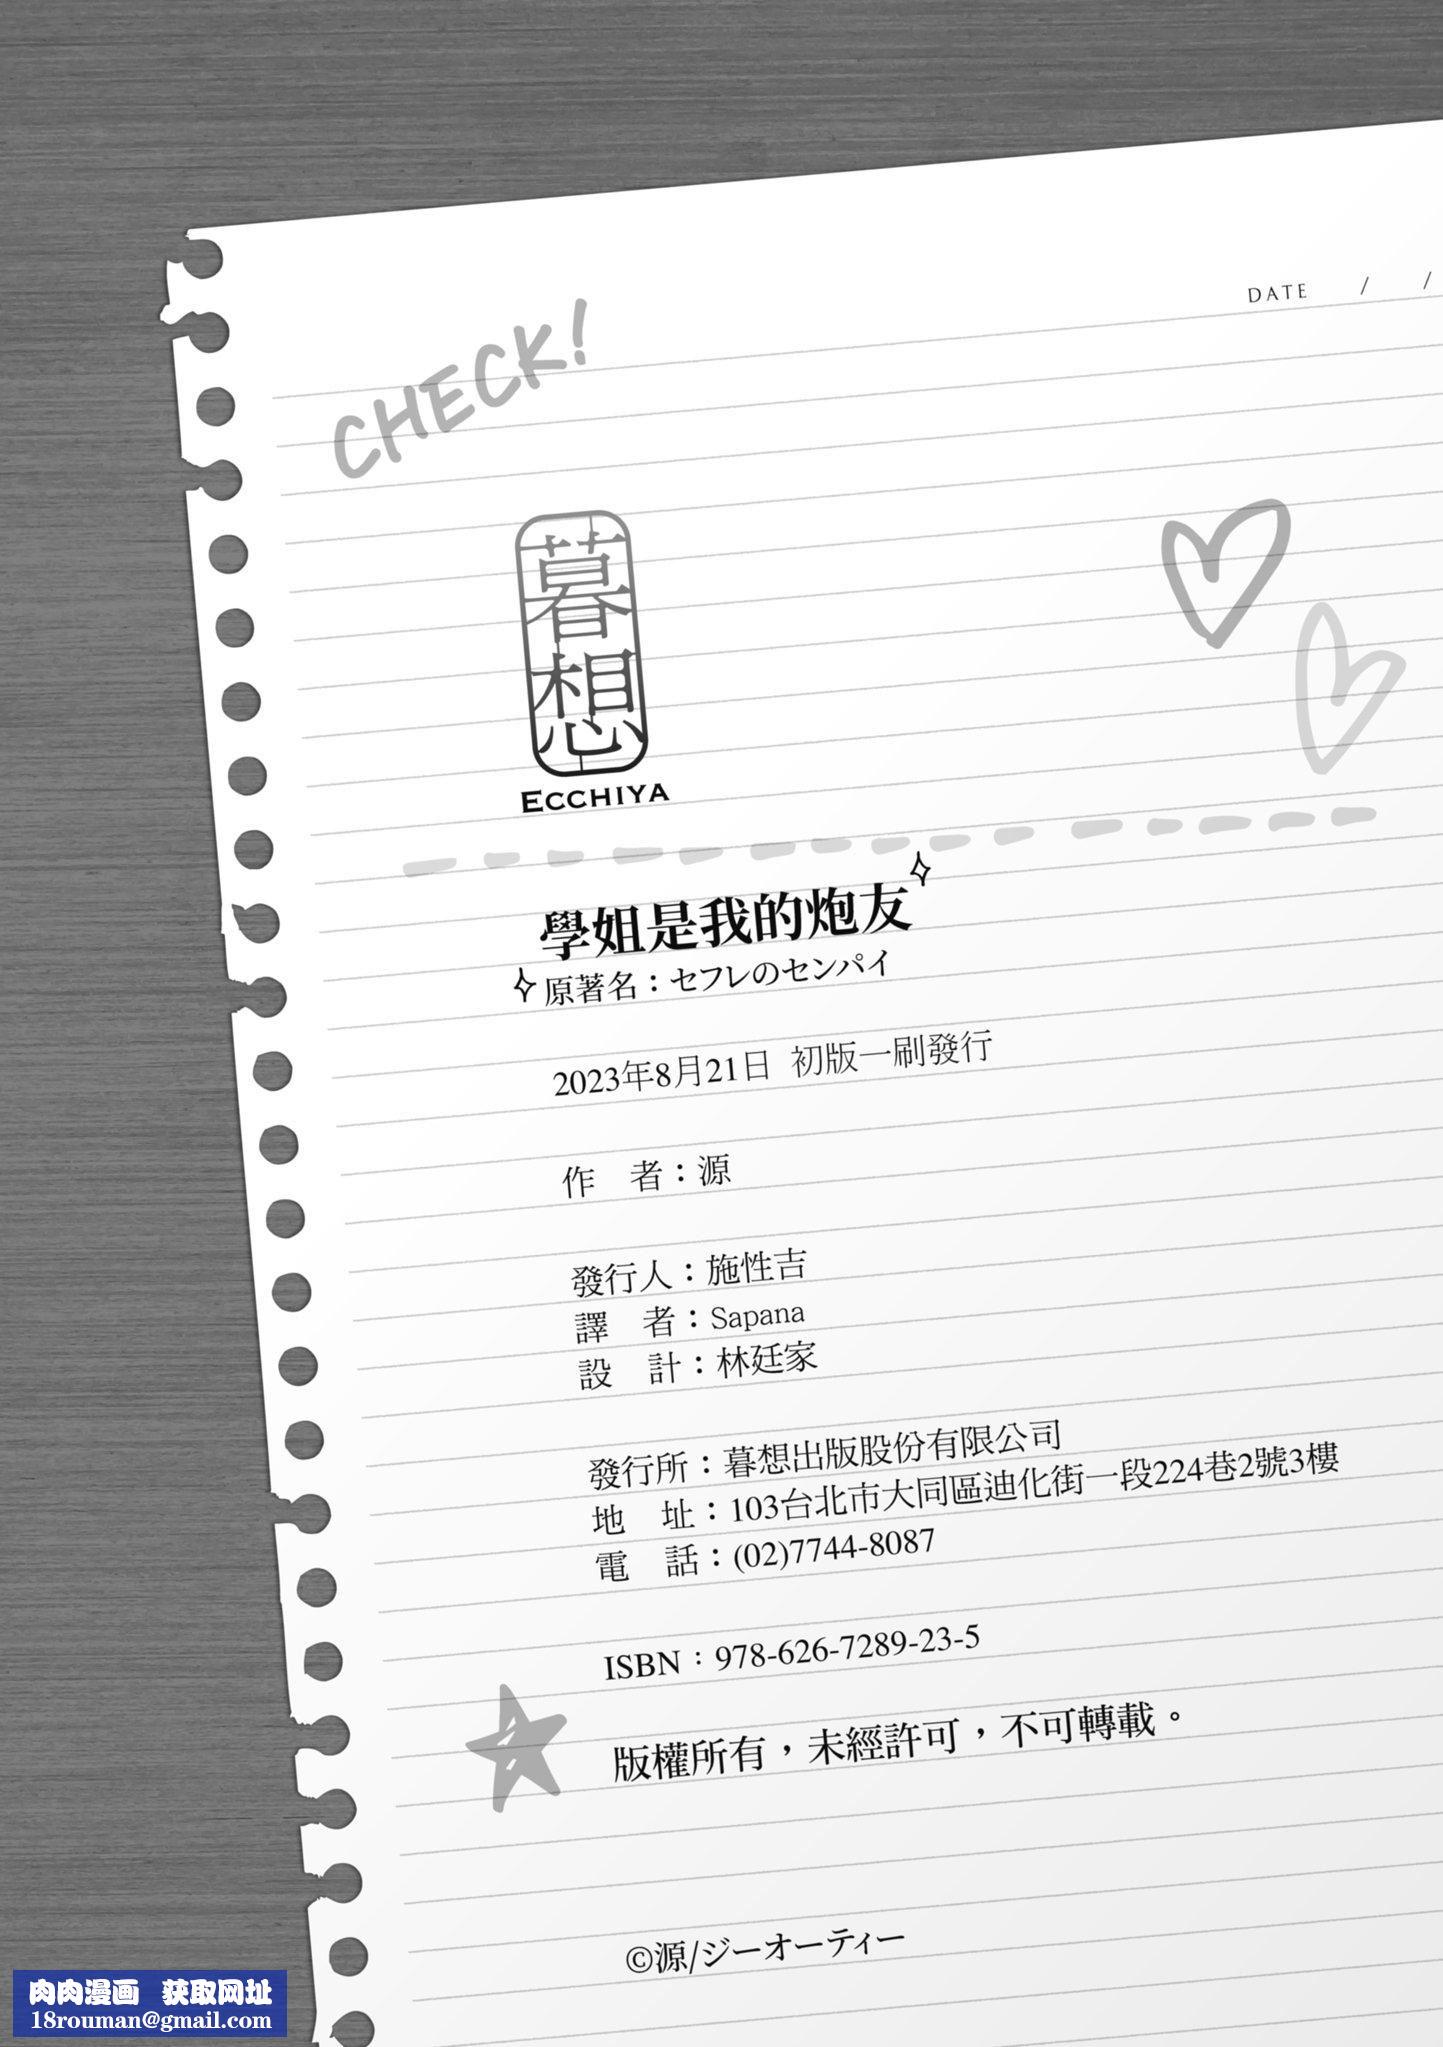 DATE / /
CHECK!
暮想
ECCHIYA
學姐是我的炮友
原著名：セフレのセンパイ
2023年8月21日 初版一刷發行
作 者：源
發行人：施性吉
譯 者：Sapana
設 計：林廷家
發行所：暮想出版股份有限公司
地 址：103台北市大同區迪化街一段224巷2號3樓
電 話：(02)7744-8087
ISBN：978-626-7289-23-5
版權所有，未經許可，不可轉載。
©源/ジーオーティー
肉肉漫画 获取网址
18rouman@gmail.com